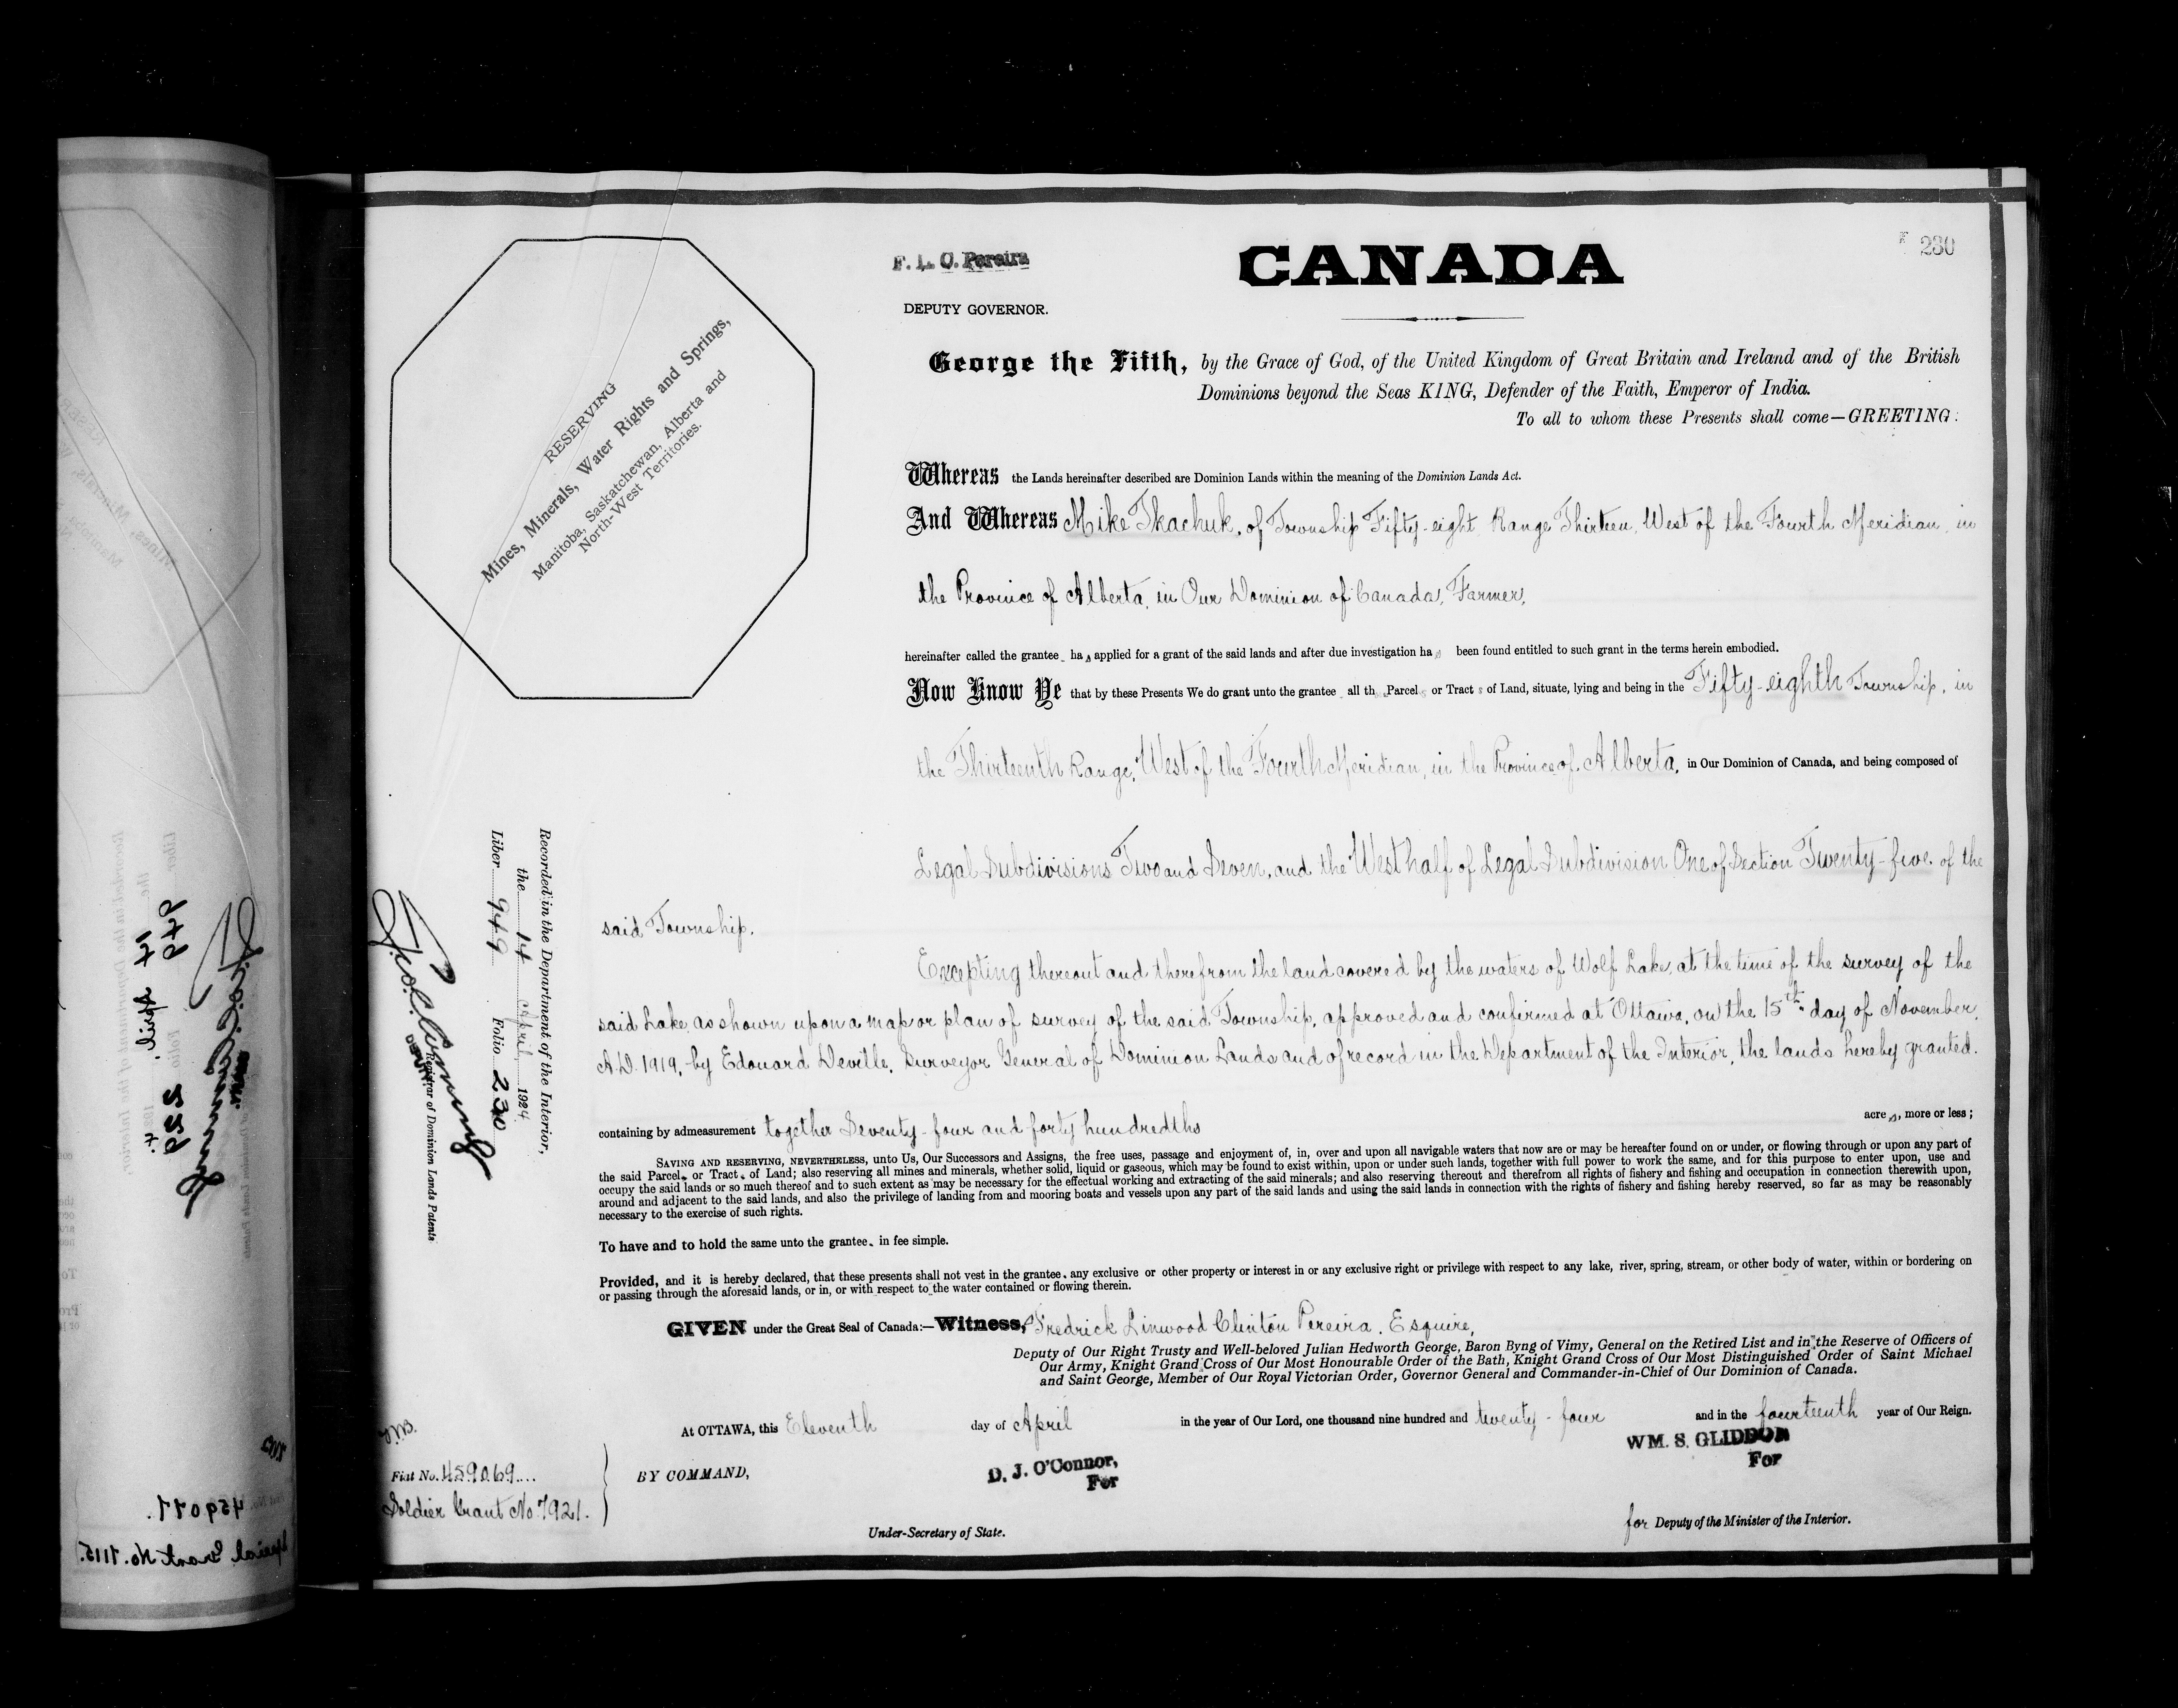 F. L. C. Pereira
CANADA
230
DEPUTY GOVERNOR.
George the Fifth, by the Grace of God, of the United Kingdom of Great Britain and Ireland and of the British
Dominions beyond the Seas KING, Defender of the Faith, Emperor of India.
To all to whom these Presents shall come—GREETING:
RESERVING
Mines, Minerals, Water Rights and Springs,
Manitoba, Saskatchewan, Alberta and
North-West Territories.
Whereas the Lands hereinafter described are Dominion Lands within the meaning of the Dominion Lands Act.
And Whereas Mike Tkachuk, of Township Fifty-eight Range Thirteen, West of the Fourth Meridian, in
the Province of Alberta, in Our Dominion of Canada, Farmer,
hereinafter called the grantee has applied for a grant of the said lands and after due investigation has been found entitled to such grant in the terms herein embodied.
Now Know Ye that by these Presents We do grant unto the grantee all th Parcels or Tracts of Land, situate, lying and being in the Fifty-eighth Township, in
the Thirteenth Range, West of the Fourth Meridian, in the Province of Alberta, in Our Dominion of Canada, and being composed of
Legal Subdivisions Two and Seven, and the West half of Legal Subdivision One of Section Twenty-five of the
said Township.
Excepting thereout and therefrom the land covered by the waters of Wolf Lake, at the time of the survey of the
said Lake as shown upon a map or plan of survey of the said Township, approved and confirmed at Ottawa, on the 15th day of November,
A.D. 1919, by Edouard Deville, Surveyor General of Dominion Lands and of record in the Department of the Interior, the lands hereby granted.
containing by admeasurement together Seventy-four and forty hundredths acres, more or less;
SAVING AND RESERVING, NEVERTHELESS, unto Us, Our Successors and Assigns, the free uses, passage and enjoyment of, in, over and upon all navigable waters that now are or may be hereafter found on or under, or flowing through or upon any part of
the said Parcels or Tracts of Land; also reserving all mines and minerals, whether solid, liquid or gaseous, which may be found to exist within, upon or under such lands, together with full power to work the same, and for this purpose to enter upon, use and
occupy the said lands or so much thereof and to such extent as may be necessary for the effectual working and extracting of the said minerals; and also reserving thereout and therefrom all rights of fishery and fishing and occupation in connection therewith upon,
around and adjacent to the said lands, and also the privilege of landing from and mooring boats and vessels upon any part of the said lands and using the said lands in connection with the rights of fishery and fishing hereby reserved, so far as may be reasonably
necessary to the exercise of such rights.
To have and to hold the same unto the grantee in fee simple.
Provided, and it is hereby declared, that these presents shall not vest in the grantee any exclusive or other property or interest in or any exclusive right or privilege with respect to any lake, river, spring, stream, or other body of water, within or bordering on
or passing through the aforesaid lands, or in, or with respect to the water contained or flowing therein.
GIVEN under the Great Seal of Canada:—Witness, Fredrick Linwood Clinton Pereira, Esquire,
Deputy of Our Right Trusty and Well-beloved Julian Hedworth George, Baron Byng of Vimy, General on the Retired List and in the Reserve of Officers of
Our Army, Knight Grand Cross of Our Most Honourable Order of the Bath, Knight Grand Cross of Our Most Distinguished Order of Saint Michael
and Saint George, Member of Our Royal Victorian Order, Governor General and Commander-in-Chief of Our Dominion of Canada.
At OTTAWA, this Eleventh day of April in the year of Our Lord, one thousand nine hundred and twenty-four and in the fourteenth year of Our Reign.
BY COMMAND,
D. J. O'Connor,
For
Under-Secretary of State.
WM. S. GLIDDON
For
for Deputy of the Minister of the Interior.
Fiat No. 459069
Soldier Grant No. 7921.
Recorded in the Department of the Interior,
the 14 April 1924
Liber 949 Folio 230
Registrar of Dominion Lands Patents
949
229
14 April
459077.
Special Grant No. 1115.